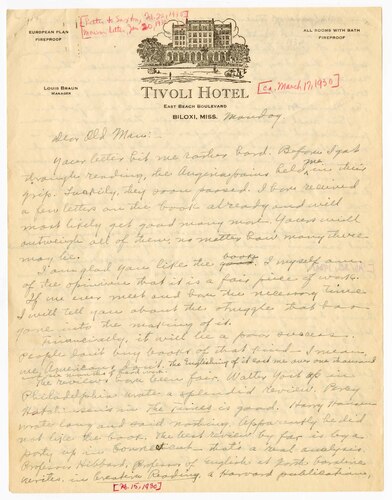 EUROPEAN PLAN
FIREPROOF
ALL ROOMS WITH BATH
FIREPROOF
LOUIS BRAUN
MANAGER
TIVOLI HOTEL
EAST BEACH BOULEVARD
[ca. March 17, 1930]
BILOXI, MISS. Monday
Dear Old Man:
Your letter hit me rather hard. Before I got
through reading, the Angina pains held me in their
grip. Luckily, they soon passed. I have received
a few letters on the book already and will
most likely get good many more. Yours will
outweigh all of them, no matter how many there
may be.
I am glad you like the book. I myself am
of the opinion that it is a fair piece of work.
If we ever meet and have the necessary time
I will tell you about the struggles that have
gone into the making of it.
Financially, it will be a poor success.
People don't buy books of that kind - I mean
The reviews have been fair. Walter Yust of
Philadelphia wrote a splendid review. Percy
in The Times is good. Harry Hansen
wrote long and said nothing. Apparently he did
not like the book. The best review by far is by a
party up in Connecticut that's a real analysis.
Professor Hibbard, Professor of English at
writes, in Creative Reading, a Harvard publication,
[Feb. 15, 1930]